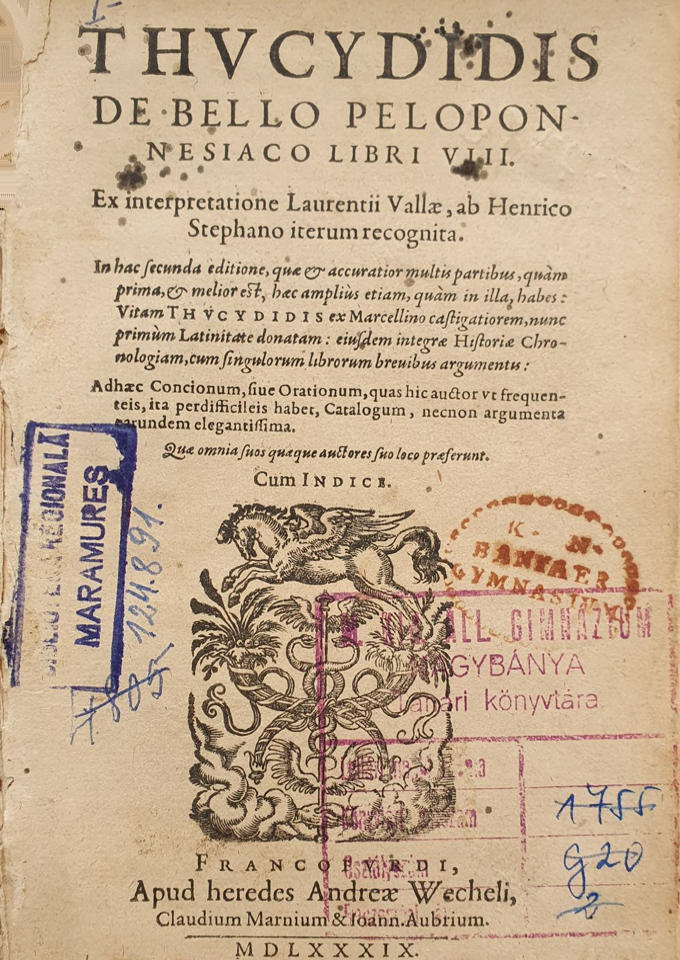 THVCYDIDIS
DE BELLO PELOPON-
NESIACO LIBRI VIII.
Ex interpretatione Laurentii Vallæ, ab Henrico
Stephano iterum recognita.
In hac secunda editione, quæ & accuratior multis partibus, quàm
prima, & melior est, hæc ampliùs etiam, quàm in illa, habes:
Vitam THVCYDIDIS ex Marcellino castigatiorem, nunc
primùm Latinitate donatam: eiusdem integræ Historiæ Chro-
nologiam, cum singulorum librorum breuibus argumentis:
Adhæc Concionum, siue Orationum, quas hic auctor vt frequen-
teis, ita perdifficileis habet, Catalogum, necnon argumenta
earundem elegantissima.
Quæ omnia suos quæque auctores suo loco præferunt.
Cum INDICE.
BIBLIOTECA REGIONALĂ
MARAMUREŞ
124.891.
K. N.
BANYAER
GYMNASIUM
ÁLL. GIMNÁZIUM
NAGYBÁNYA
Tanári könyvtára
1755
G20
2
FRANCOFVRDI,
Apud heredes Andreæ Wecheli,
Claudium Marnium & Ioann. Aubrium.
MDLXXXIX.